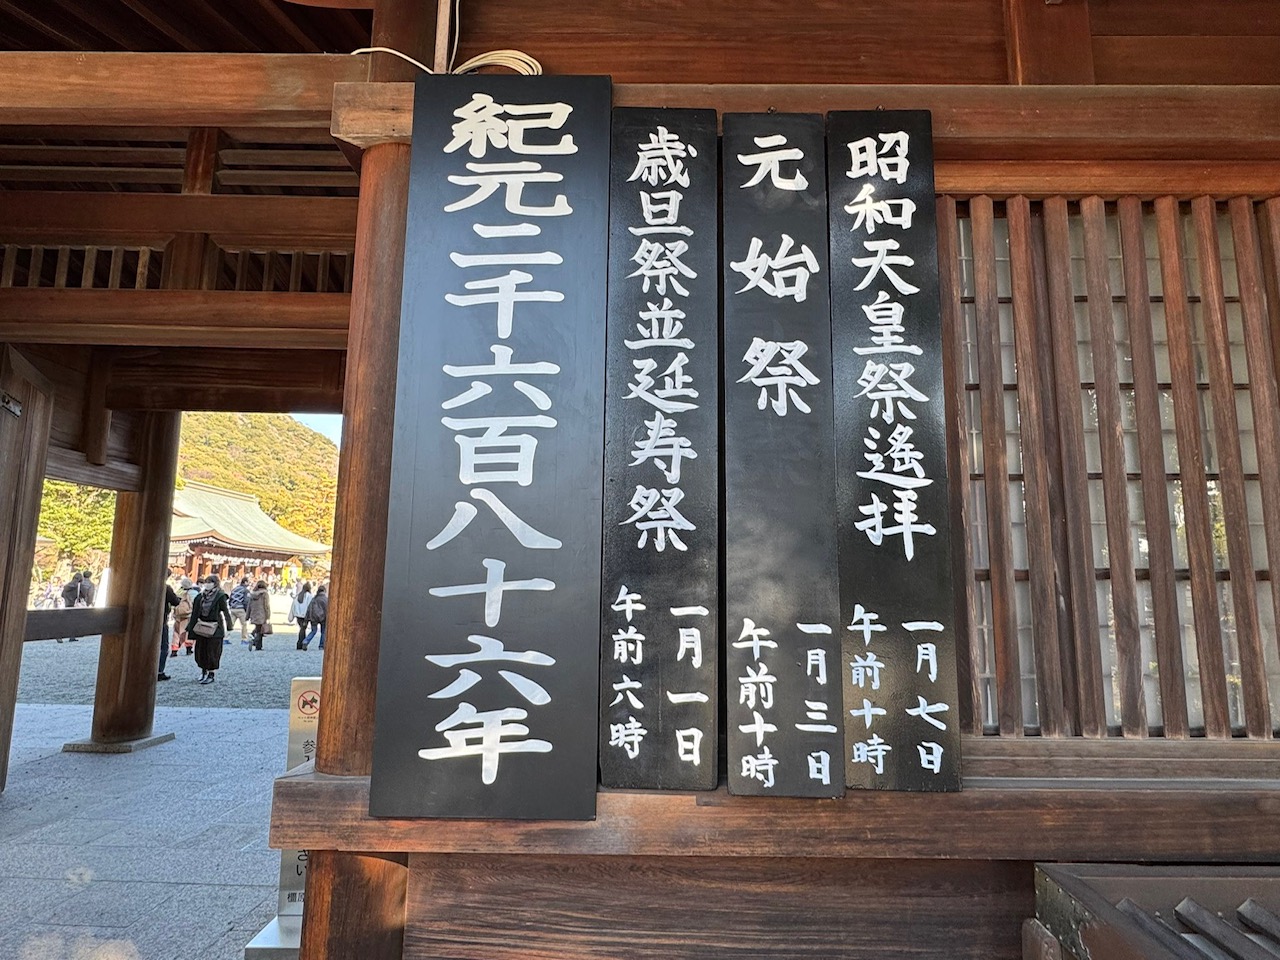 昭和天皇祭遙拝
一月七日
午前十時
元始祭
一月三日
午前十時
歳旦祭並延寿祭
一月一日
午前六時
紀元二千六百八十六年
参
さい
橿原